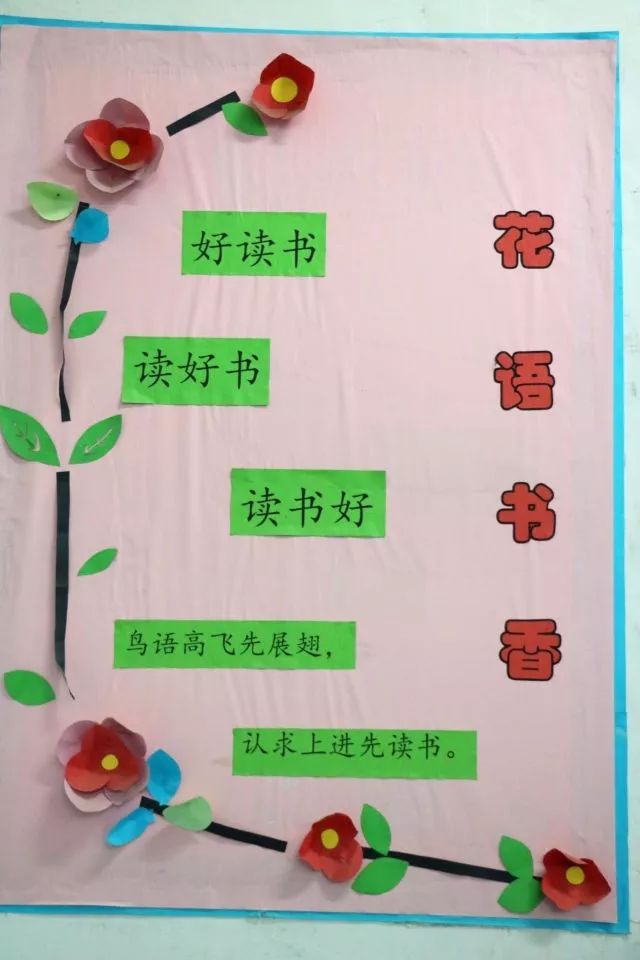 花语书香
好读书
读好书
读书好
鸟语高飞先展翅，
认求上进先读书。